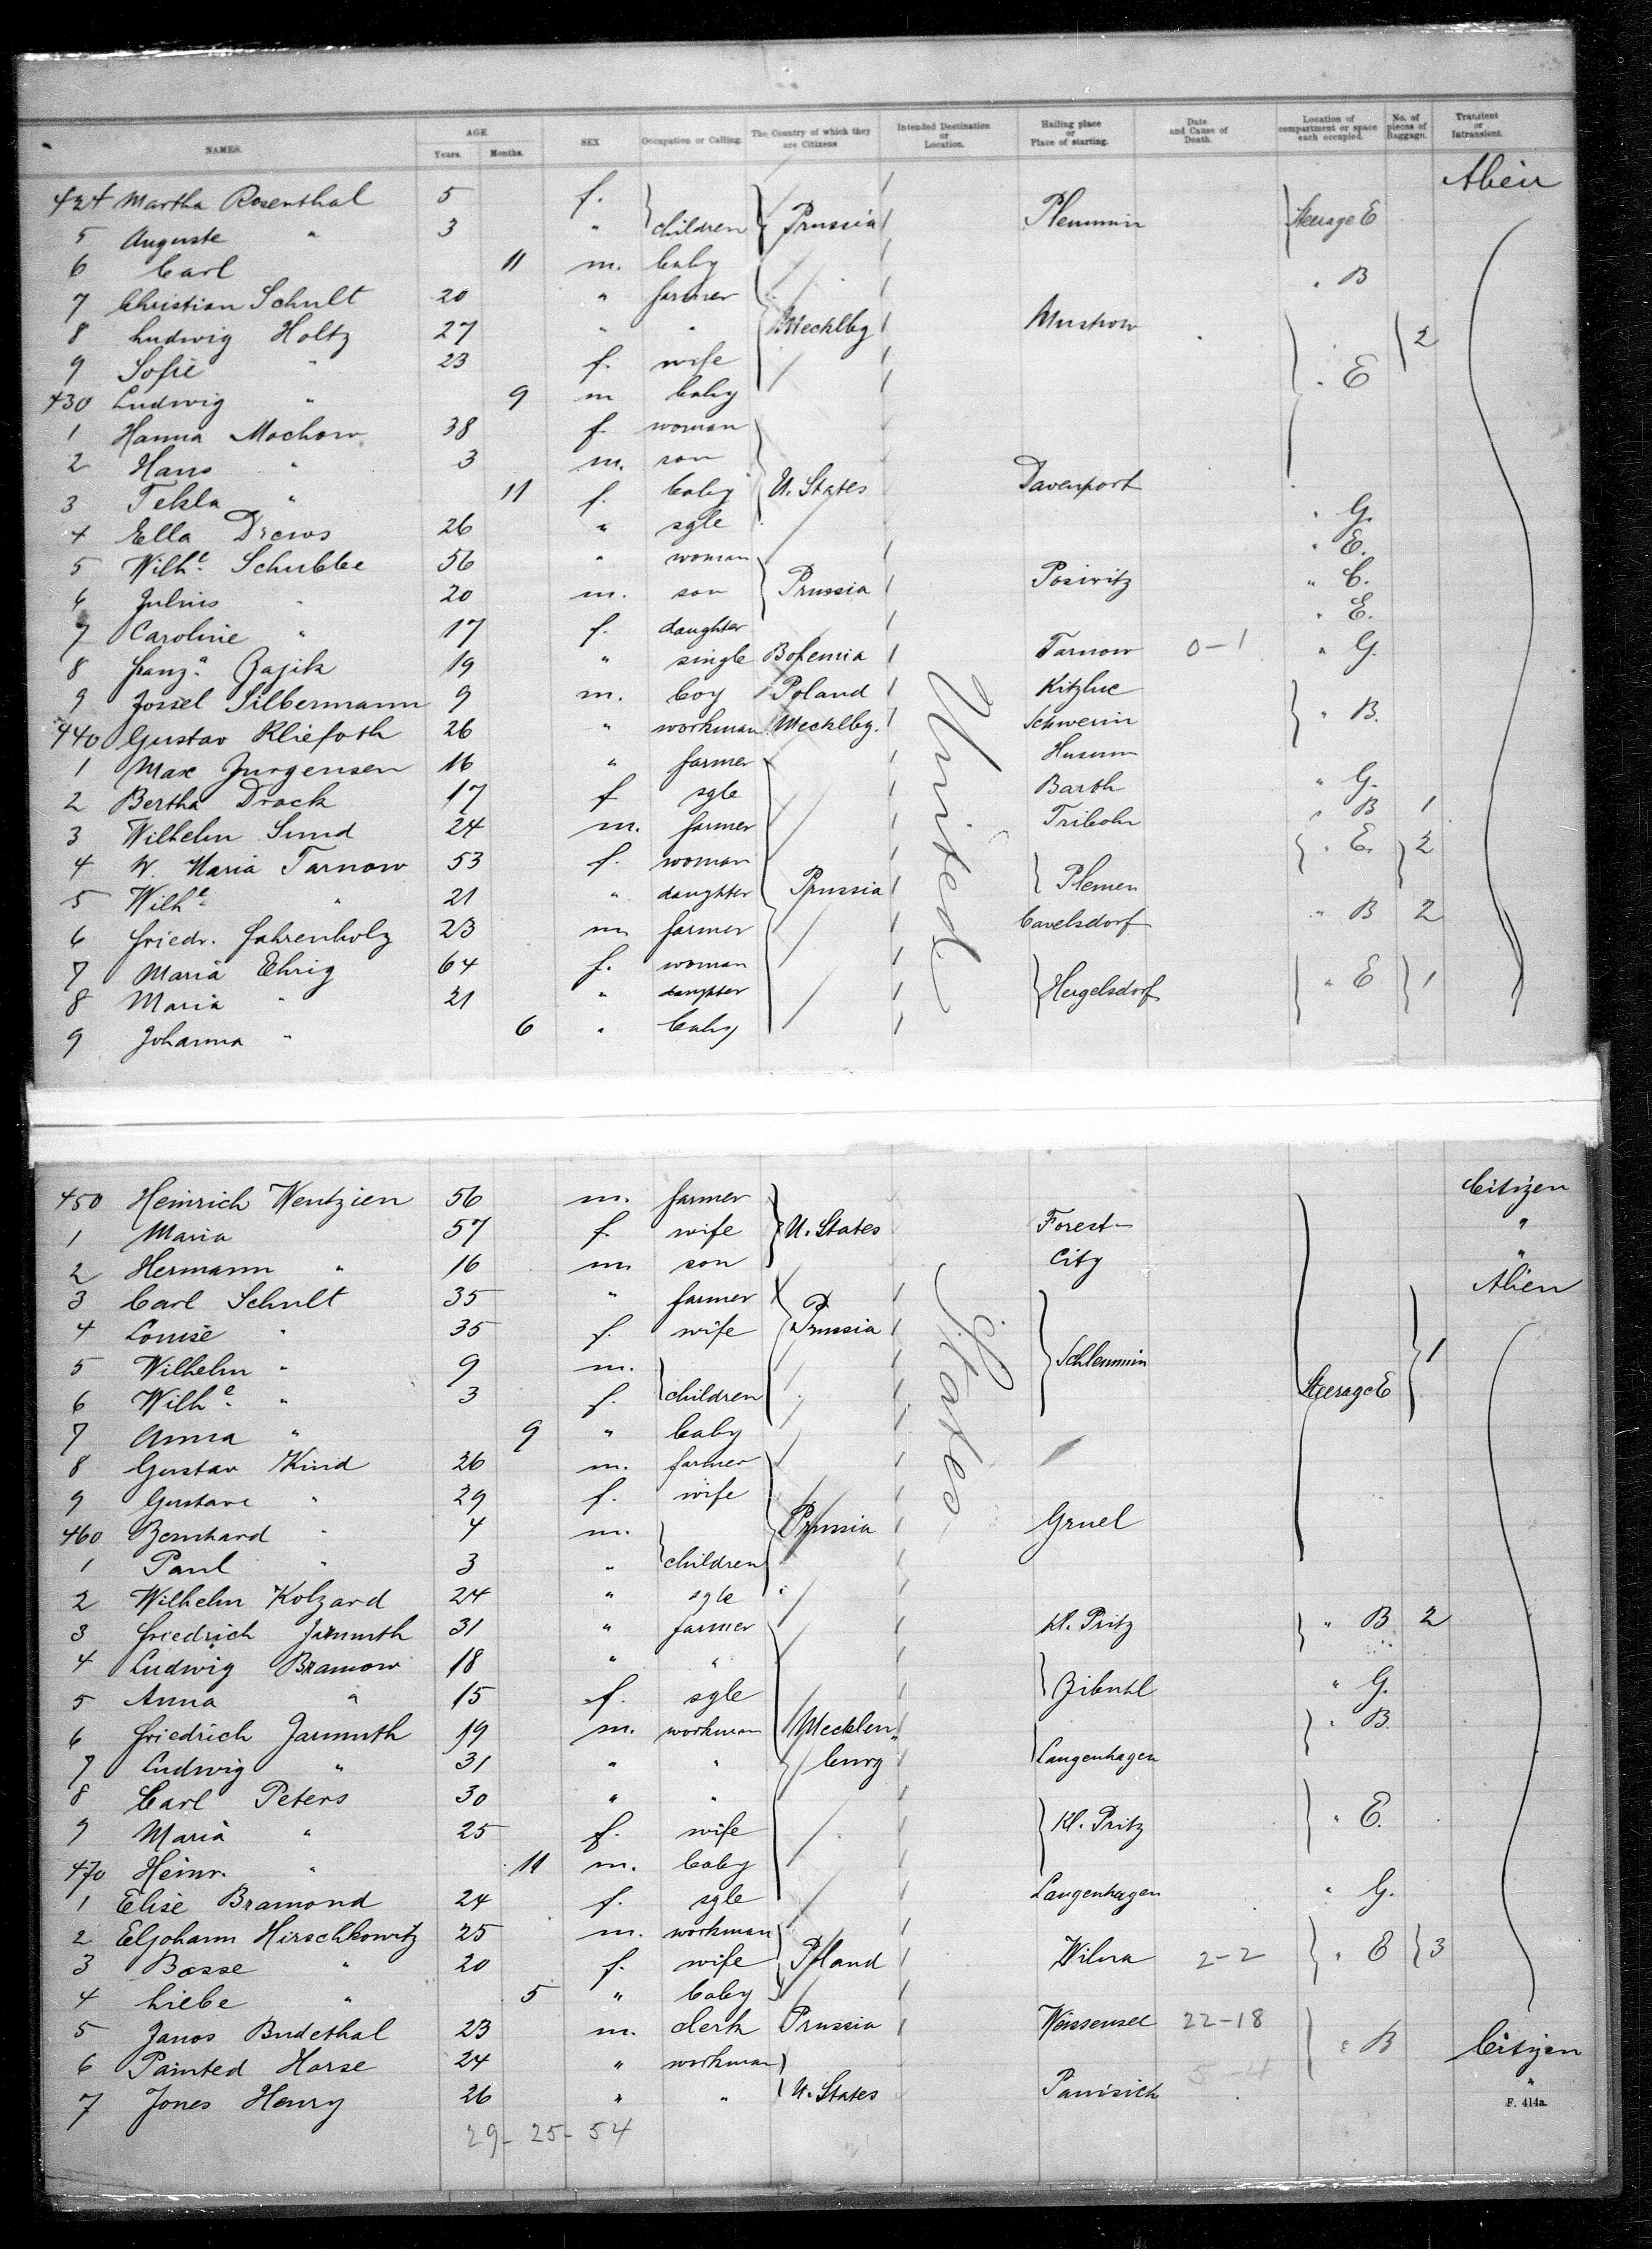 NAMES. AGE Years. Months. SEX Occupation or Calling. The Country of which they are Citizens Intended Destination or Location. Hailing place or Place of starting. Date and Cause of Death. Location of compartment or space each occupied. No. of pieces of Baggage. Transient or Intransient.
Alien
424 Martha Rosenthal 5 f. children Prussia Plemmin Steerage E
5 Auguste " 3 "
6 Carl 11 m. baby
7 Christian Schult 20 " farmer " B
8 Ludwig Holtz 27 " " Mecklbg 2
9 Sofie " 23 f. wife " E
430 Ludwig " 9 m baby
1 Hanna Mochow 38 f. woman
2 Hans " 3 m. son
3 Tekla " 11 f. baby U. States Davenport
4 Ella Drews 26 " sgle " G.
5 Wilhe. Schubbe 56 " woman " E.
6 Julius " 20 m. son Prussia Posiwitz " C.
7 Caroline " 17 f. daughter " E.
8 Franza. Zajik 19 " single Bohemia Tarnow 0-1 " G.
9 Jossel Silbermann 9 m. boy Poland
440 Gustav Kliefoth 26 " workman Mecklbg. Schwerin " B.
1 Max Jurgensen 16 " farmer Husum
2 Bertha Drock 17 f sgle Barth " G.
3 Wilhelm Sund 24 m. farmer Tribohn " B 1
4 W. Maria Tarnow 53 f. woman " E. 2
5 Wilhe. " 21 " daughter Prussia Plemen
6 Friedr. Fahrenholz 23 m farmer Cavelsdorf " B 2
7 Maria Ehrig 64 f. woman
8 Maria " 21 " daughter Hergelsdorf " E 1
9 Johanna " 6 " baby
United
450 Heinrich Wentzien 56 m. farmer Citizen
1 Maria 57 f. wife U. States Forest- "
2 Hermann " 16 m. son City "
3 Carl Schult 35 " farmer Alien
4 Louise " 35 f. wife Prussia
5 Wilhelm " 9 m. Schlemmin 1
6 Wilhe. " 3 f. children Steerage E
7 Anna " 9 " baby
8 Gustav Kind 26 m. farmer
9 Gustave " 29 f. wife
460 Bernhard " 4 m. Prussia Gruel
1 Paul " 3 " children
2 Wilhelm Kolzard 24 " sgle
3 Friedrich Jarmuth 31 " farmer Kl. Pritz " B 2
4 Ludwig Bramow 18 " "
5 Anna " 15 f. sgle Zibuhl " G.
6 Friedrich Jarmuth 19 m. workman Mecklen " B.
7 Ludwig " 31 " " burg Langenhagen
8 Carl Peters 30 " "
9 Maria " 25 f. wife Kl. Pritz " E.
470 Heinr. " 11 m. baby
1 Elise Bramond 24 f. sgle Langenhagen " G.
2 Eljohann Hirschkowitz 25 m. workman
3 Basse " 20 f. wife Poland Wilna 2-2 " E 3
4 Liebe " 5 " baby
5 Janos Budethal 23 m. clerk Prussia Weissensee 22-18
6 Painted Horse 24 " workman " B Citizen
7 Jones Henry 26 " " U. States "
States
F. 414a.
29- 25- 54